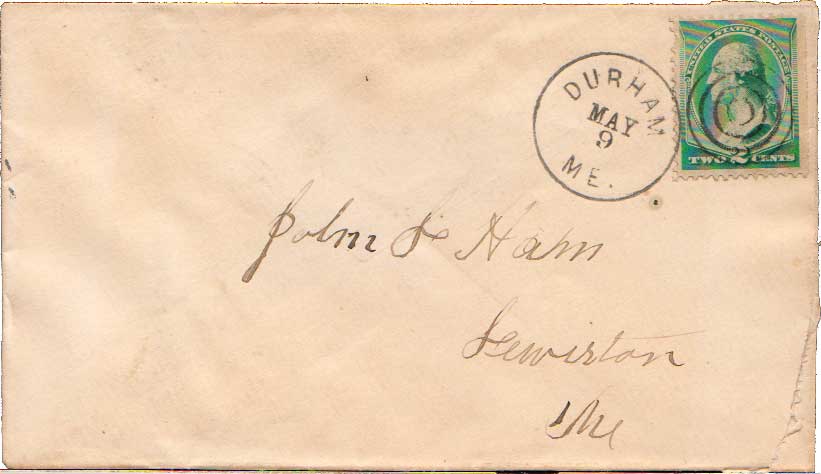 UNITED STATES POSTAGE
TWO 2 CENTS
DURHAM
MAY
9
ME.
John L Ham
Lewiston
Me